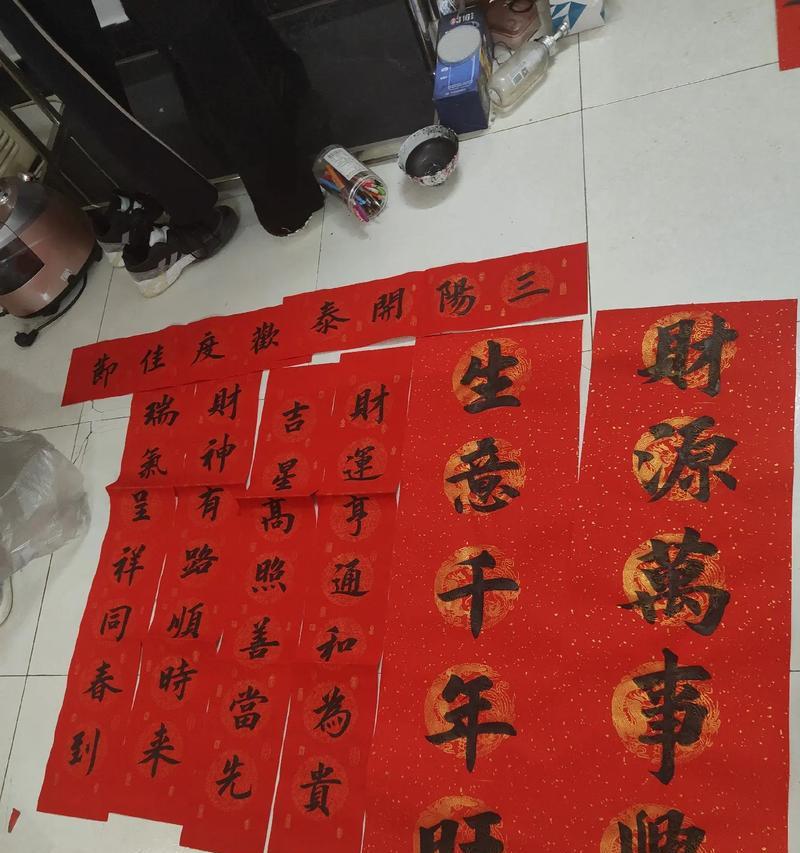 三陽開泰歡度佳節
財源萬事順
生意千年旺
財運亨通和為貴
吉星髙照善當先
財神有路順時来
瑞氣呈祥同春到